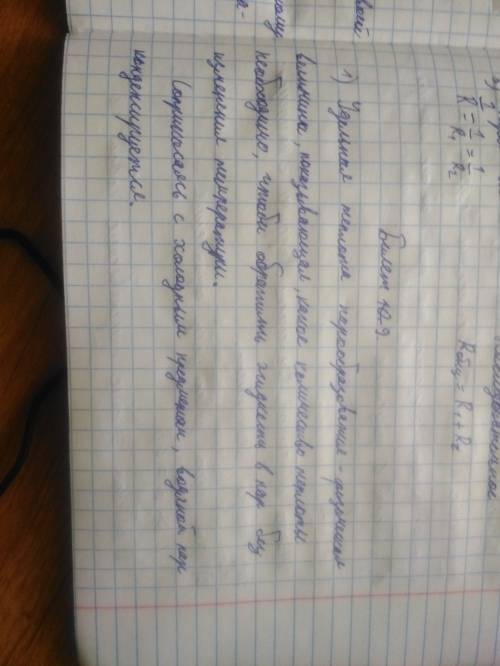 1/R = 1/R₁ = 1/R₂
Rобщ = R₁ + R₂
Билет №9.
1) Удельная теплота парообразования - физическая
величина, показывающая, какое количество теплоты
необходимо, чтобы обратить жидкость в пар без
изменения температуры.
Соприкасаясь с холодным предметам, водяной пар
конденсируется.